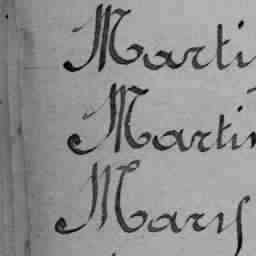 Marti
Martin
Mary